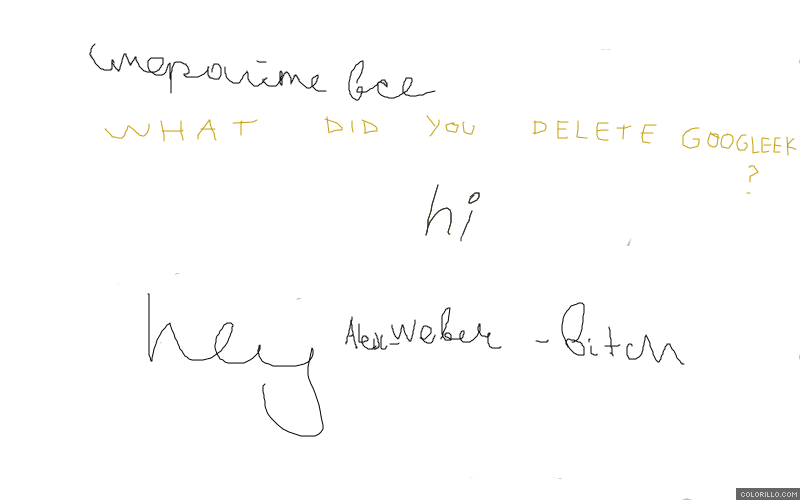 стерайте все
WHAT DID YOU DELETE GOOGLEEK
?
hi
hey Alex_Weber - Bitch
COLORILLO.COM